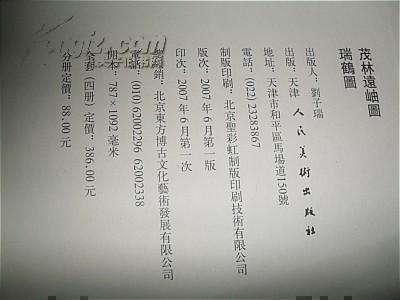 茂林遠岫圖
瑞鶴圖
出版人：劉子瑞
出版：天津人民美術出版社
地址：天津市和平區馬場道150號
電話：(022) 23283867
制版印刷：北京聖彩虹制版印刷技術有限公司
版次：2007年6月第一版
印次：2007年6月第一次
銷：北京東方博古文化藝術發展有限公司
電話：(010) 62002296 62002338
本：787×1092毫米
全套（四册）定價：386.00元
分册定價：88.00元